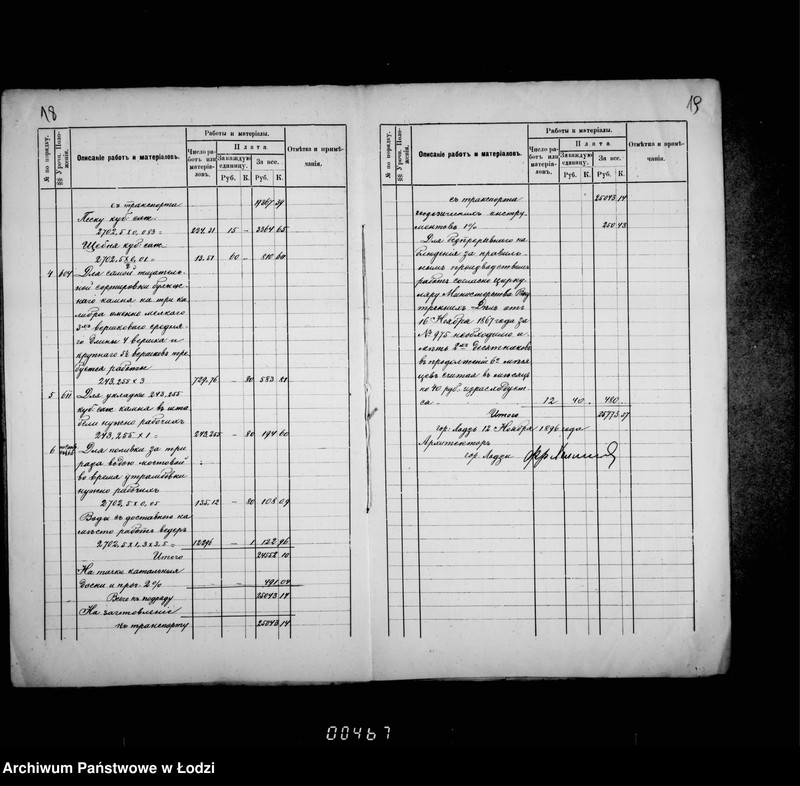 18
№ по порядку.
§§ Урочн. Положенія.
Описаніе работъ и матеріаловъ.
Работы и матеріалы.
Число работъ или матеріаловъ.
Плата
За каждую единицу.
За все.
Руб. К. Руб. К.
Отмѣтка и примѣчанія.
съ транспорта 19367 39
Песку куб. саж.
2702,5 х 0,083 = 224.31 15 – 3364 65
Щебня куб. саж.
13.51 60 – 810 60
4 604 Для самой тщательной сортировки булыжнаго камня на три калибра именно мелкаго
3хъ вершковаго средняго длины 4 вершка и
крупнаго 5½ вершковъ требуется рабочихъ
243,255 х 3 729.76 – 80 583 81
5 611 Для укладки 243,255
куб. саж. камня въ штабели нужно рабочихъ
243,255 х 1 = 243,255 – 80 194 60
6 Для поливки за три
раза водою мостовой
во время утрамбовки
нужно рабочихъ
2702,5 х 0,05 135.12 – 80 108 09
Воды съ доставкою на
мѣсто работъ ведеръ
2702,5 х 1,3 х 3,5 = 12296 – 1 122 96
Итого 24552 10
На тачки катальныя
доски и проч. 2% 491.04
Всего къ подряду 25043 14
На заготовленіе
къ транспорту 25043 14
19
№ по порядку.
§§ Урочн. Положенія.
Описаніе работъ и матеріаловъ.
Работы и матеріалы.
Число работъ или матеріаловъ.
Плата
За каждую единицу.
За все.
Руб. К. Руб. К.
Отмѣтка и примѣчанія.
съ транспорта 25043 14
геодезическихъ инструментовъ 1% 250 43
Для безпрерывнаго наблюденія за правильнымъ производствомъ
работъ согласно циркуляру Министерства Внутреннихъ Дѣлъ отъ
16 Ноября 1867 года за
№ 975 необходимо имѣть 2хъ десятниковъ
въ продолженіи 6ти мѣсяцевъ считая въ мѣсяцъ
по 40 руб. израсходуется 12 40 . 480 .
Итого 25773.57
гор: Лодзь 12 Ноября 1896 года
Архитекторъ
гор. Лодзи
00467
Archiwum Państwowe w Łodzi